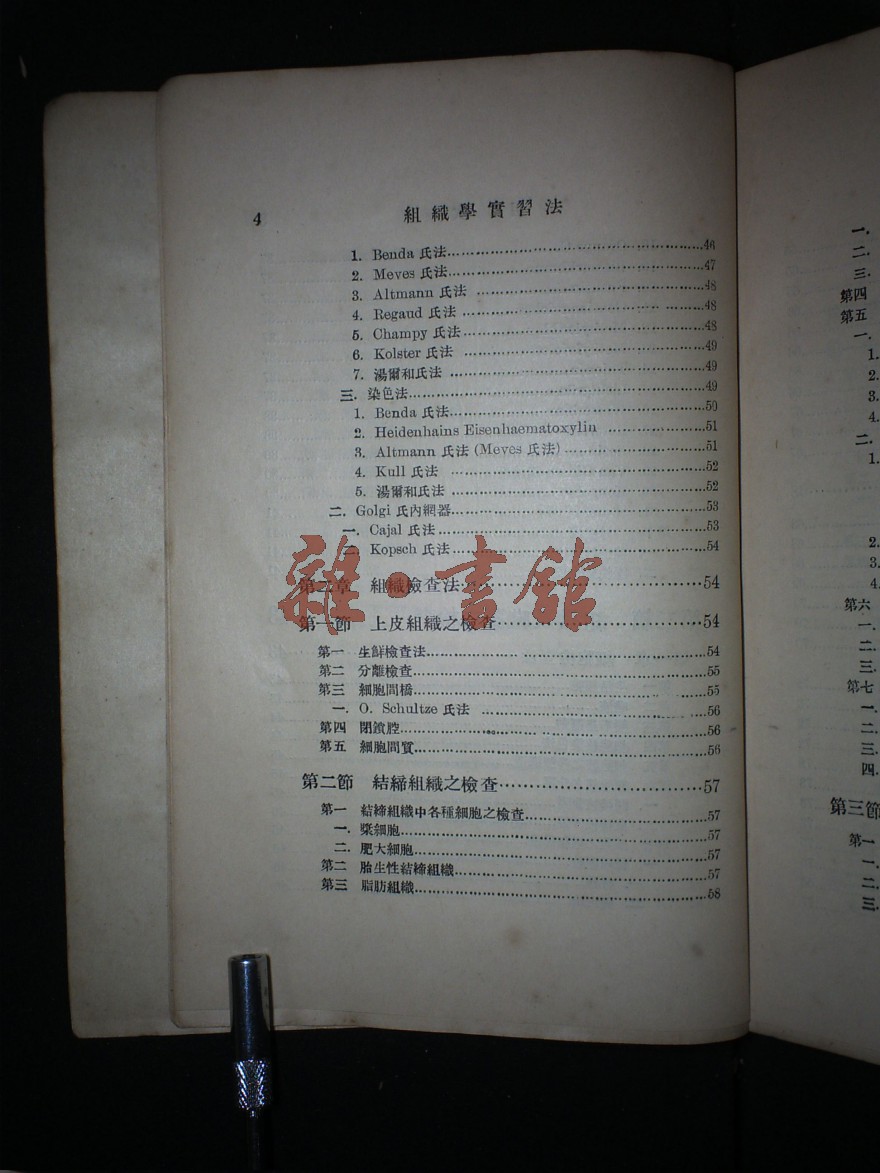 4 組織學實習法
1. Benda 氏法……46
2. Meves 氏法……47
3. Altmann 氏法……48
4. Regaud 氏法……48
5. Champy 氏法……48
6. Kolster 氏法……49
7. 湯爾和氏法……49
三. 染色法……49
1. Benda 氏法……50
2. Heidenhains Eisenhaematoxylin……51
3. Altmann 氏法 (Meves 氏法)……51
4. Kull 氏法……52
5. 湯爾和氏法……52
二. Golgi 氏內網器……53
一. Cajal 氏法……53
二. Kopsch 氏法……54
第二章 組織檢查法……54
雜·書館
第一節 上皮組織之檢查……54
第一 生鮮檢查法……54
第二 分離檢查……55
第三 細胞間橋……55
一. O. Schultze 氏法……56
第四 閉鎖腔……56
第五 細胞間質……56
第二節 結締組織之檢查……57
第一 結締組織中各種細胞之檢查……57
一. 漿細胞……57
二. 肥大細胞……57
第二 胎生性結締組織……57
第三 脂肪組織……58
一.
二.
三.
第四
第五
一.
1.
2.
3.
4.
二.
1.
2.
3.
4.
第六
一.
二.
三.
第七
一.
二.
三.
四.
第三節
第一
一.
二.
三.